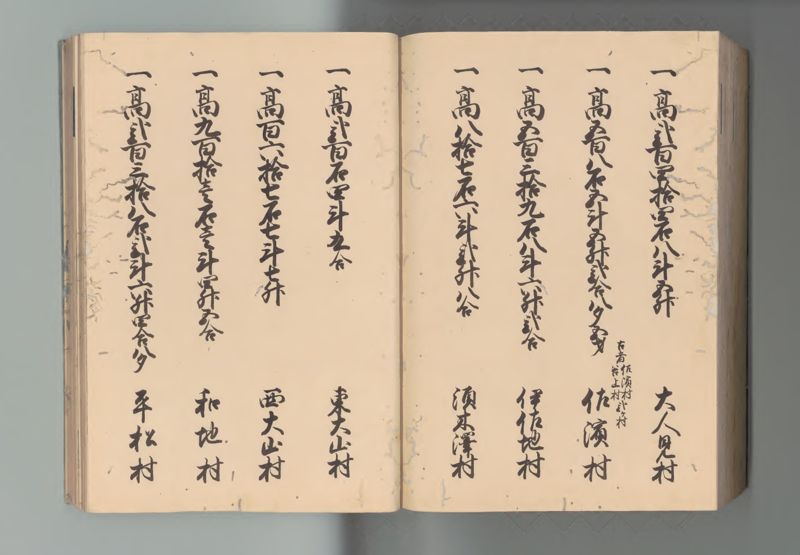 一高弐百四拾四石八斗五升 大人見村
一高五百八石五斗五升弐合八夕五才 佐濱村
古者佐濱村
一高五百三拾九石八斗六升弐合 伊佐地村
一高八拾七石六斗弐升八合 須木澤村
一高弐百石四斗五合 東大山村
一高百六拾七石七斗七升 西大山村
一高九百拾壱石壱斗四升五合 和地村
一高弐百三拾八石弐斗六升四合八夕 平松村